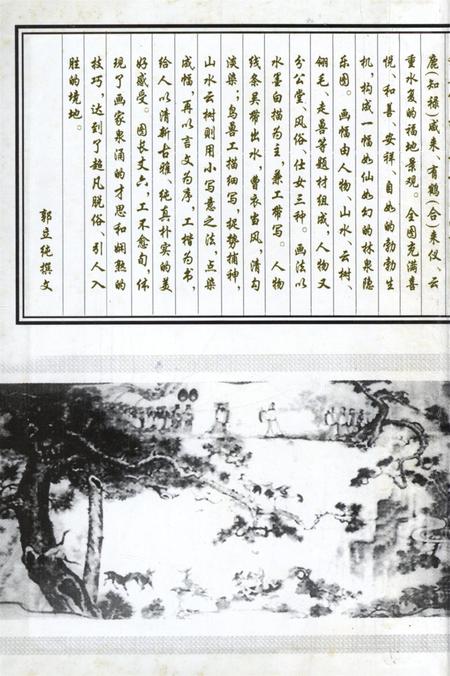 鹿(知禄)咸来、有鹤(合)来仪、云
重水复的福地景观。全图充满喜
悦、和善、安祥、自如的勃勃生
机，构成一幅如仙如幻的林泉隐
乐图。画幅由人物、山水、云树、
翎毛、走兽等题材组成，人物又
分公堂、风俗、仕女三种。画法以
水墨白描为主，兼工带写。人物
线条吴带出水，曹衣当风，清勾
淡染；鸟兽工描细写，捉势捕神，
山水云树则用小写意之法，点染
成幅，再以言文为序，工楷为书，
给人以清新古雅、纯真朴实的美
好感受。图长丈六，工不愈旬，体
现了画家泉涌的才思和娴熟的
技巧，达到了超凡脱俗、引人入
胜的境地。
郭立纯撰文